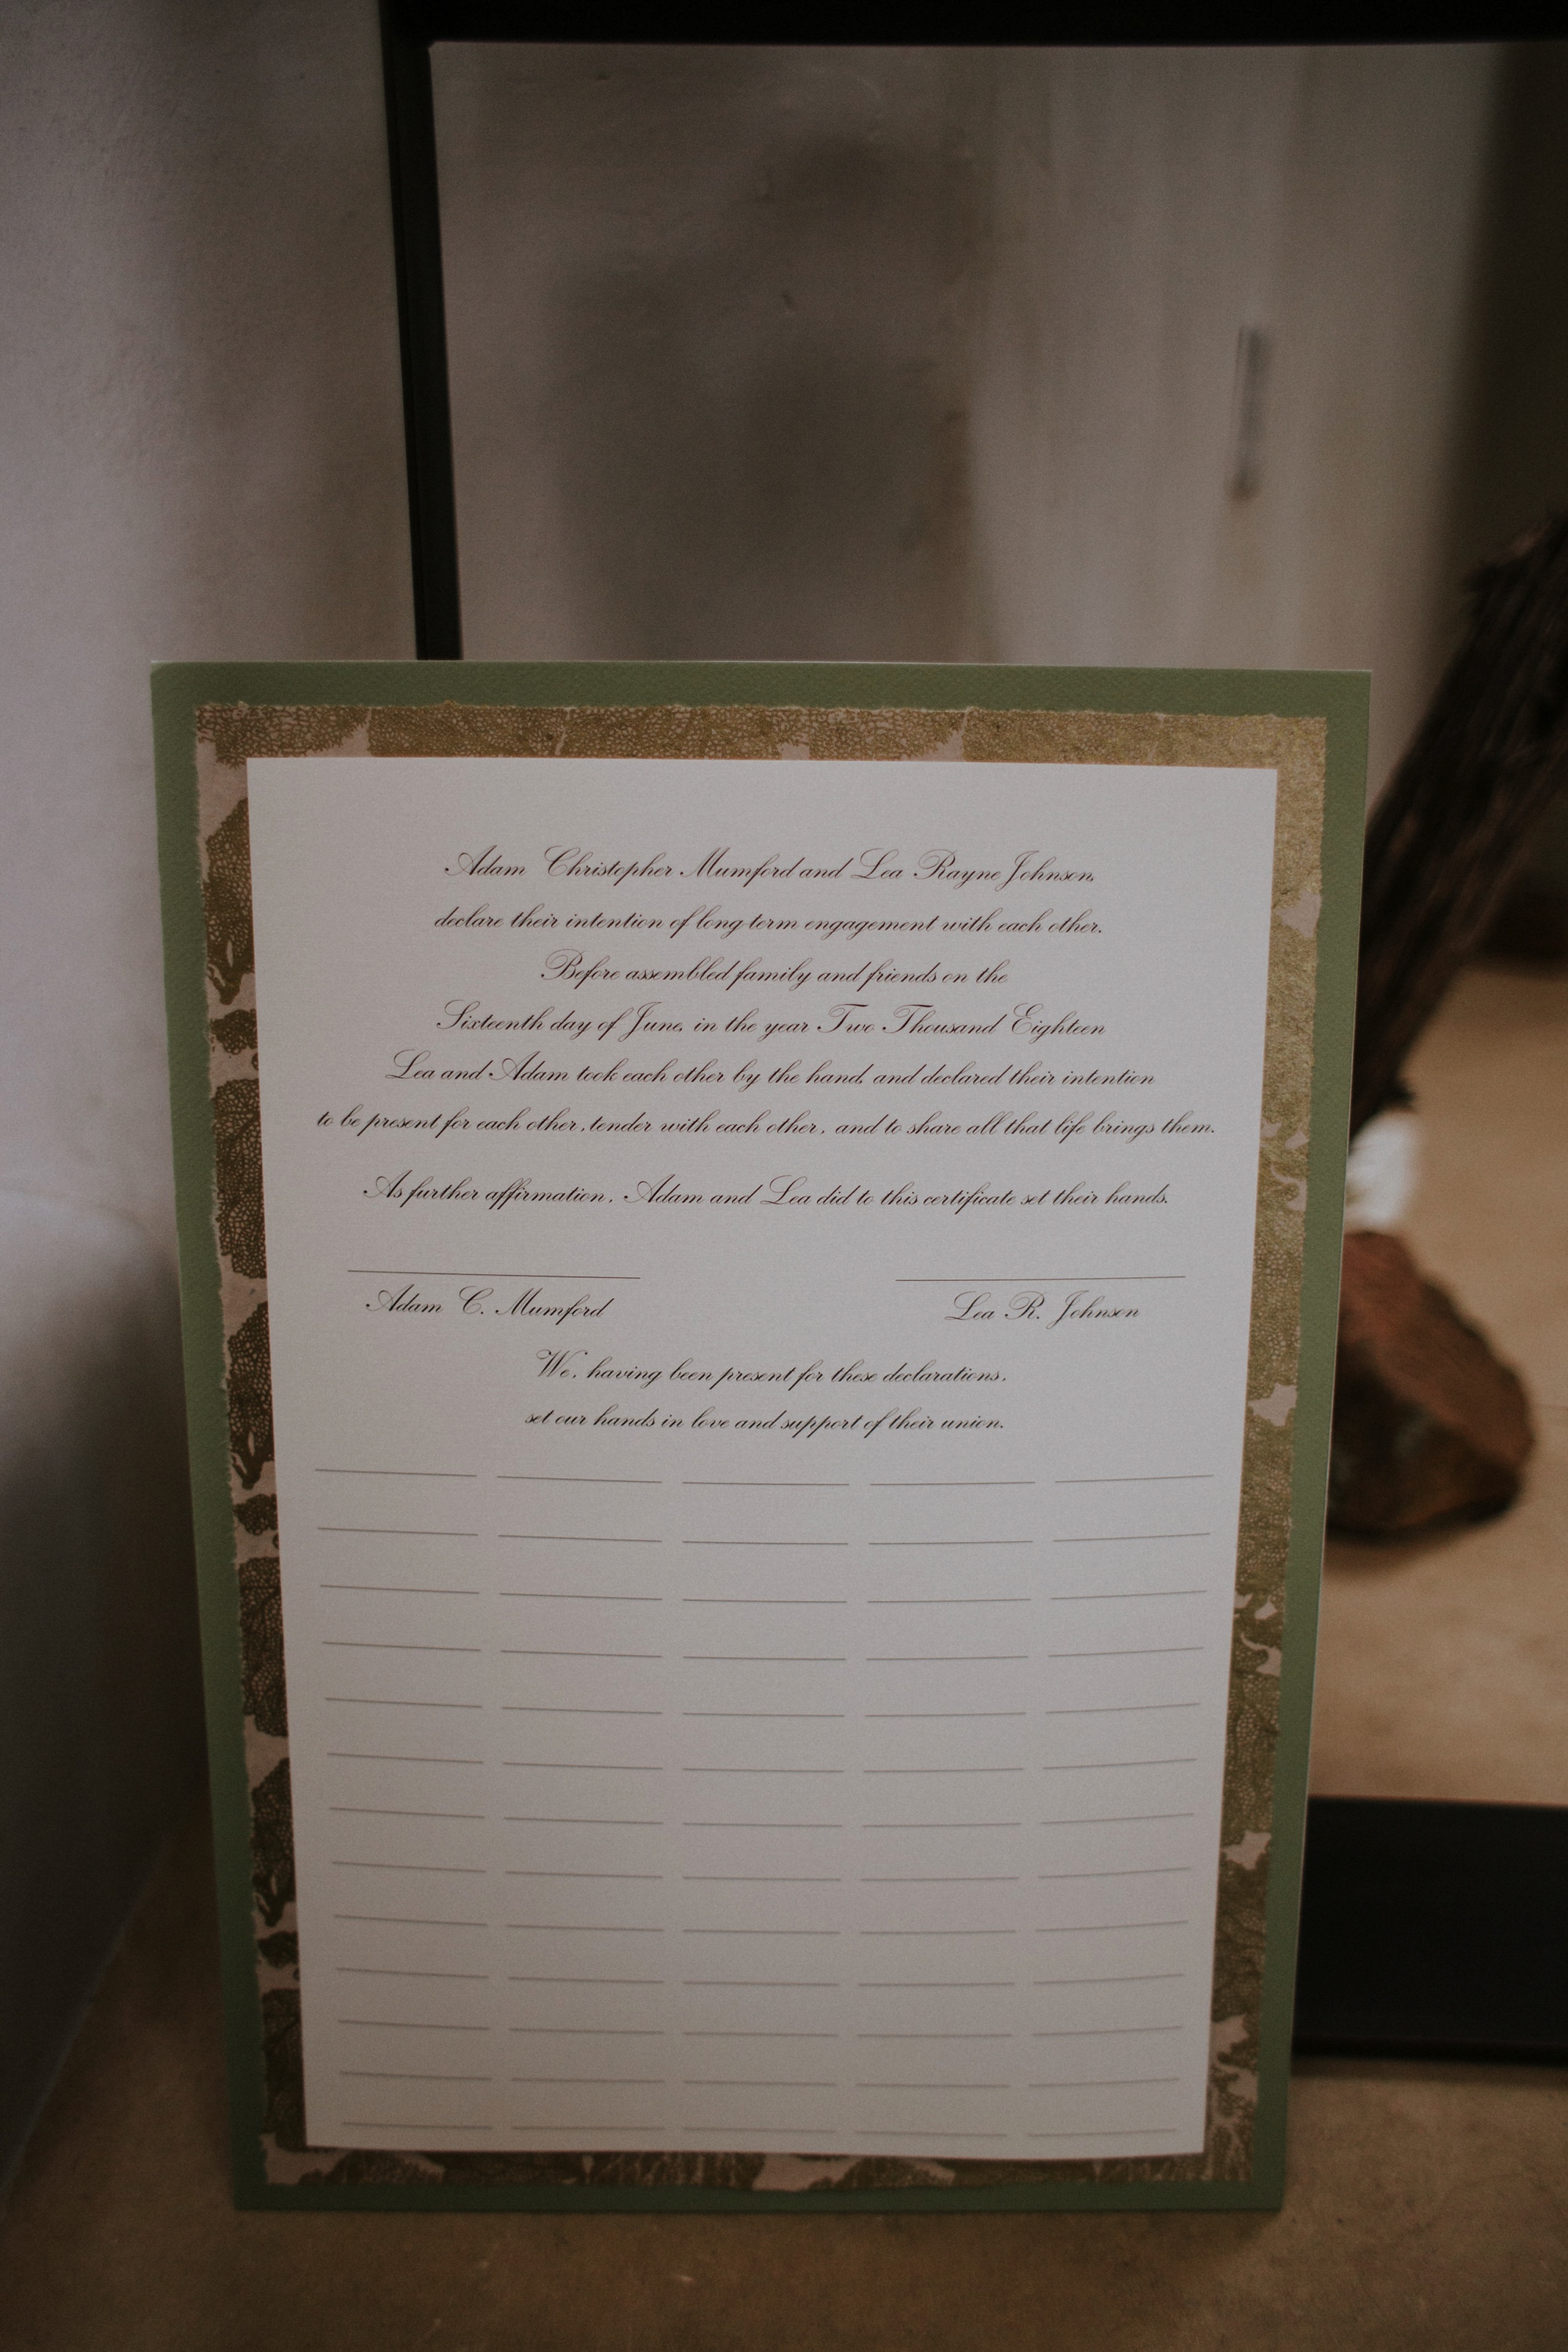 Adam Christopher Mumford and Lea Rayne Johnson,
declare their intention of long-term engagement with each other.
Before assembled family and friends on the
Sixteenth day of June, in the year Two Thousand Eighteen
Lea and Adam took each other by the hand, and declared their intention
to be present for each other, tender with each other, and to share all that life brings them.
As further affirmation, Adam and Lea did to this certificate set their hands.
Adam C. Mumford
Lea R. Johnson
We, having been present for these declarations,
set our hands in love and support of their union.